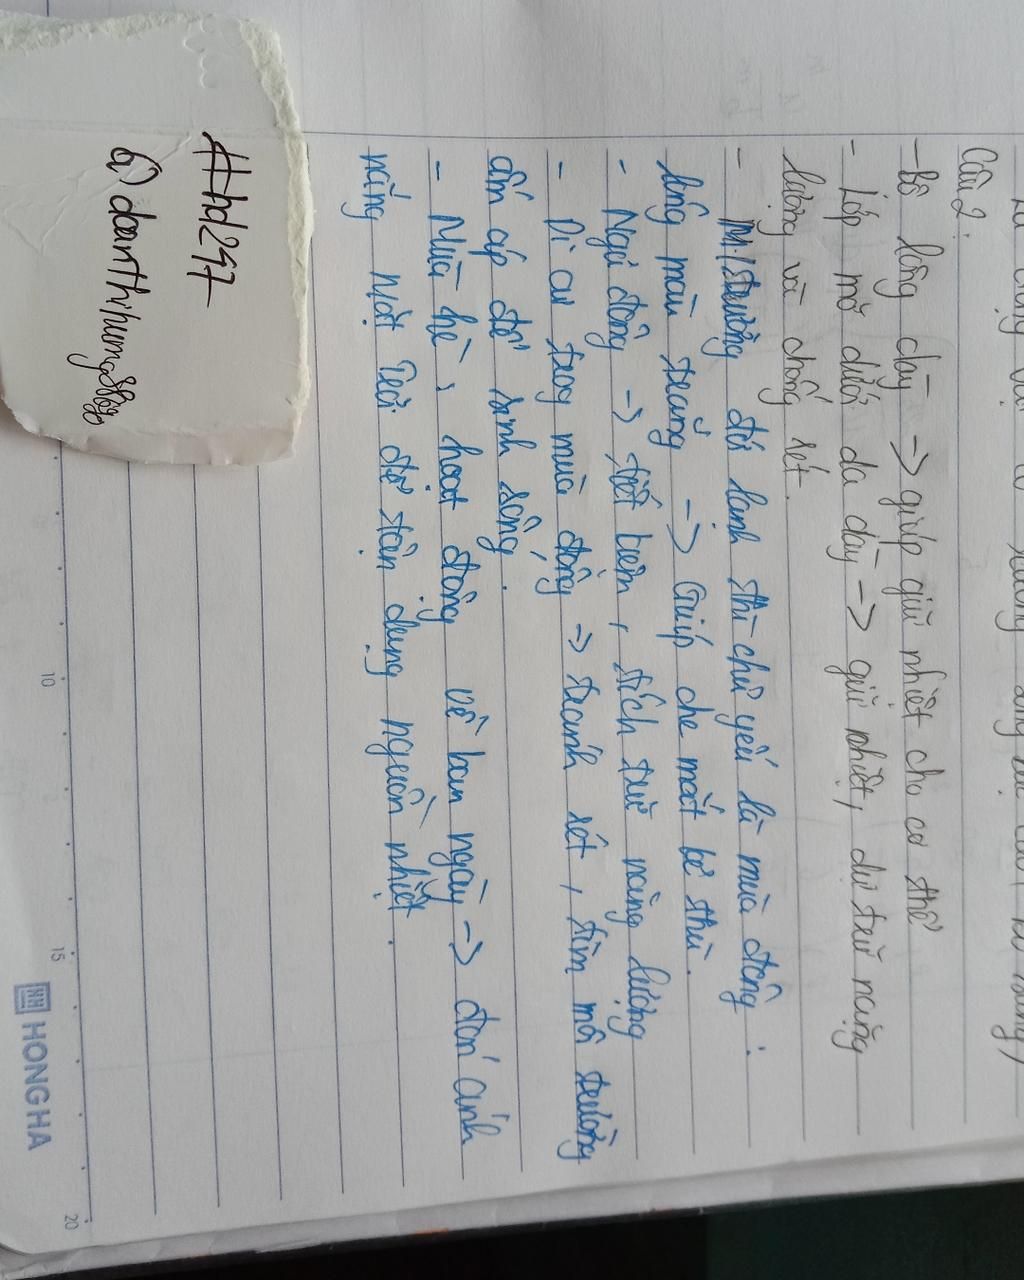 Câu 2:
- Bộ lông dày -> giúp giữ nhiệt cho cơ thể
- Lớp mỡ dưới da dày -> giữ nhiệt, dự trữ năng
lượng và chống rét.
- M/trường đới lạnh thì chủ yếu là mùa đông :
lông màu trắng -> Giúp che mắt kẻ thù.
- Ngủ đông -> tiết kiệm, tích trữ năng lượng
- Di cư trog mùa đông -> tránh rét, tìm môi trường
ấm áp để sinh sống.
- Mùa hè, hoạt động về ban ngày -> đón ánh
nắng mặt trời để tận dụng nguồn nhiệt.
#hd297
HONG HA
10
15
20